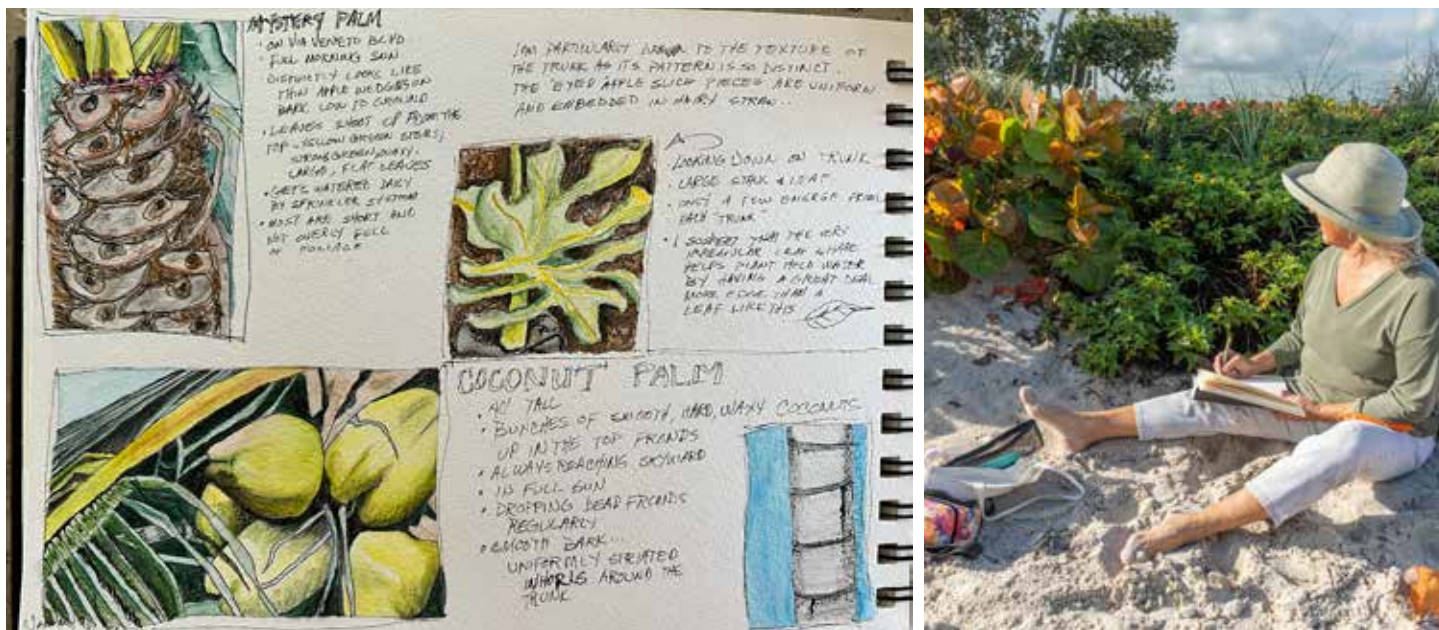 MYSTERY PALM
• ON VIA VENETO BLVD.
• FULL MORNING SUN
DISTINCTLY LOOKS LIKE
THIN APPLE WEDGES ON
BARK LOW TO GROUND
• LEAVES SHOOT UP FROM THE
TOP - YELLOW GREEN STEMS,
STRONG GREEN, WAXY,
LARGE, FLAT LEAVES
• GETS WATERED DAILY
BY SPRINKLER SYSTEM
• MOST ARE SHORT AND
NOT OVERLY FULL
OF FOLIAGE
I AM PARTICULARLY DRAWN TO THE TEXTURE OF
THE TRUNK AS ITS PATTERN IS SO DISTINCT.
THE 'EYED' APPLE SLICE PIECES ARE UNIFORM
AND EMBEDDED IN HAIRY STRAW..
LOOKING DOWN ON TRUNK
• LARGE STALK & LEAF
• ONLY A FEW EMERGE FROM
EACH "TRUNK"
• I SUSPECT THAT THE VERY
IRREGULAR LEAF SHAPE
HELPS PLANT HOLD WATER
BY HAVING A GREAT DEAL
MORE EDGE THAN A
LEAF LIKE THIS
COCONUT PALM
• 40' TALL
• BUNCHES OF SMOOTH, HARD, WAXY COCONUTS
UP IN THE TOP FRONDS
• ALWAYS REACHING SKYWARD
• IN FULL SUN
• DROPPING DEAD FRONDS
REGULARLY
• SMOOTH BARK...
UNIFORMLY STRIATED
WHORLS AROUND THE
TRUNK